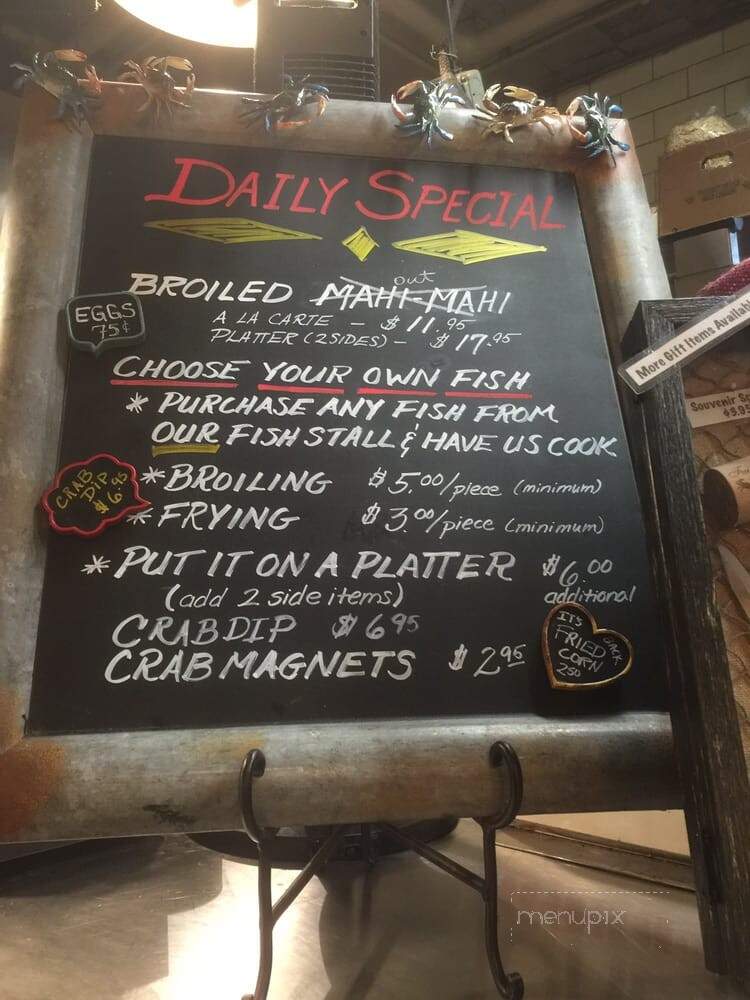 DAILY SPECIAL
out
BROILED MAHI-MAHI
A LA CARTE - $11.95
PLATTER (2 SIDES) - $17.95
EGGS
75¢
CHOOSE YOUR OWN FISH
* PURCHASE ANY FISH FROM
OUR FISH STALL & HAVE US COOK
* BROILING $5.00/piece (minimum)
* FRYING $3.00/piece (minimum)
CRAB
DIP
$6.95
* PUT IT ON A PLATTER $6.00
(add 2 side items) additional
CRAB DIP $6.95
CRAB MAGNETS $2.95
ITS
BACK
FRIED
CORN
250
More Gift Items Availabl
Souvenir
menupix